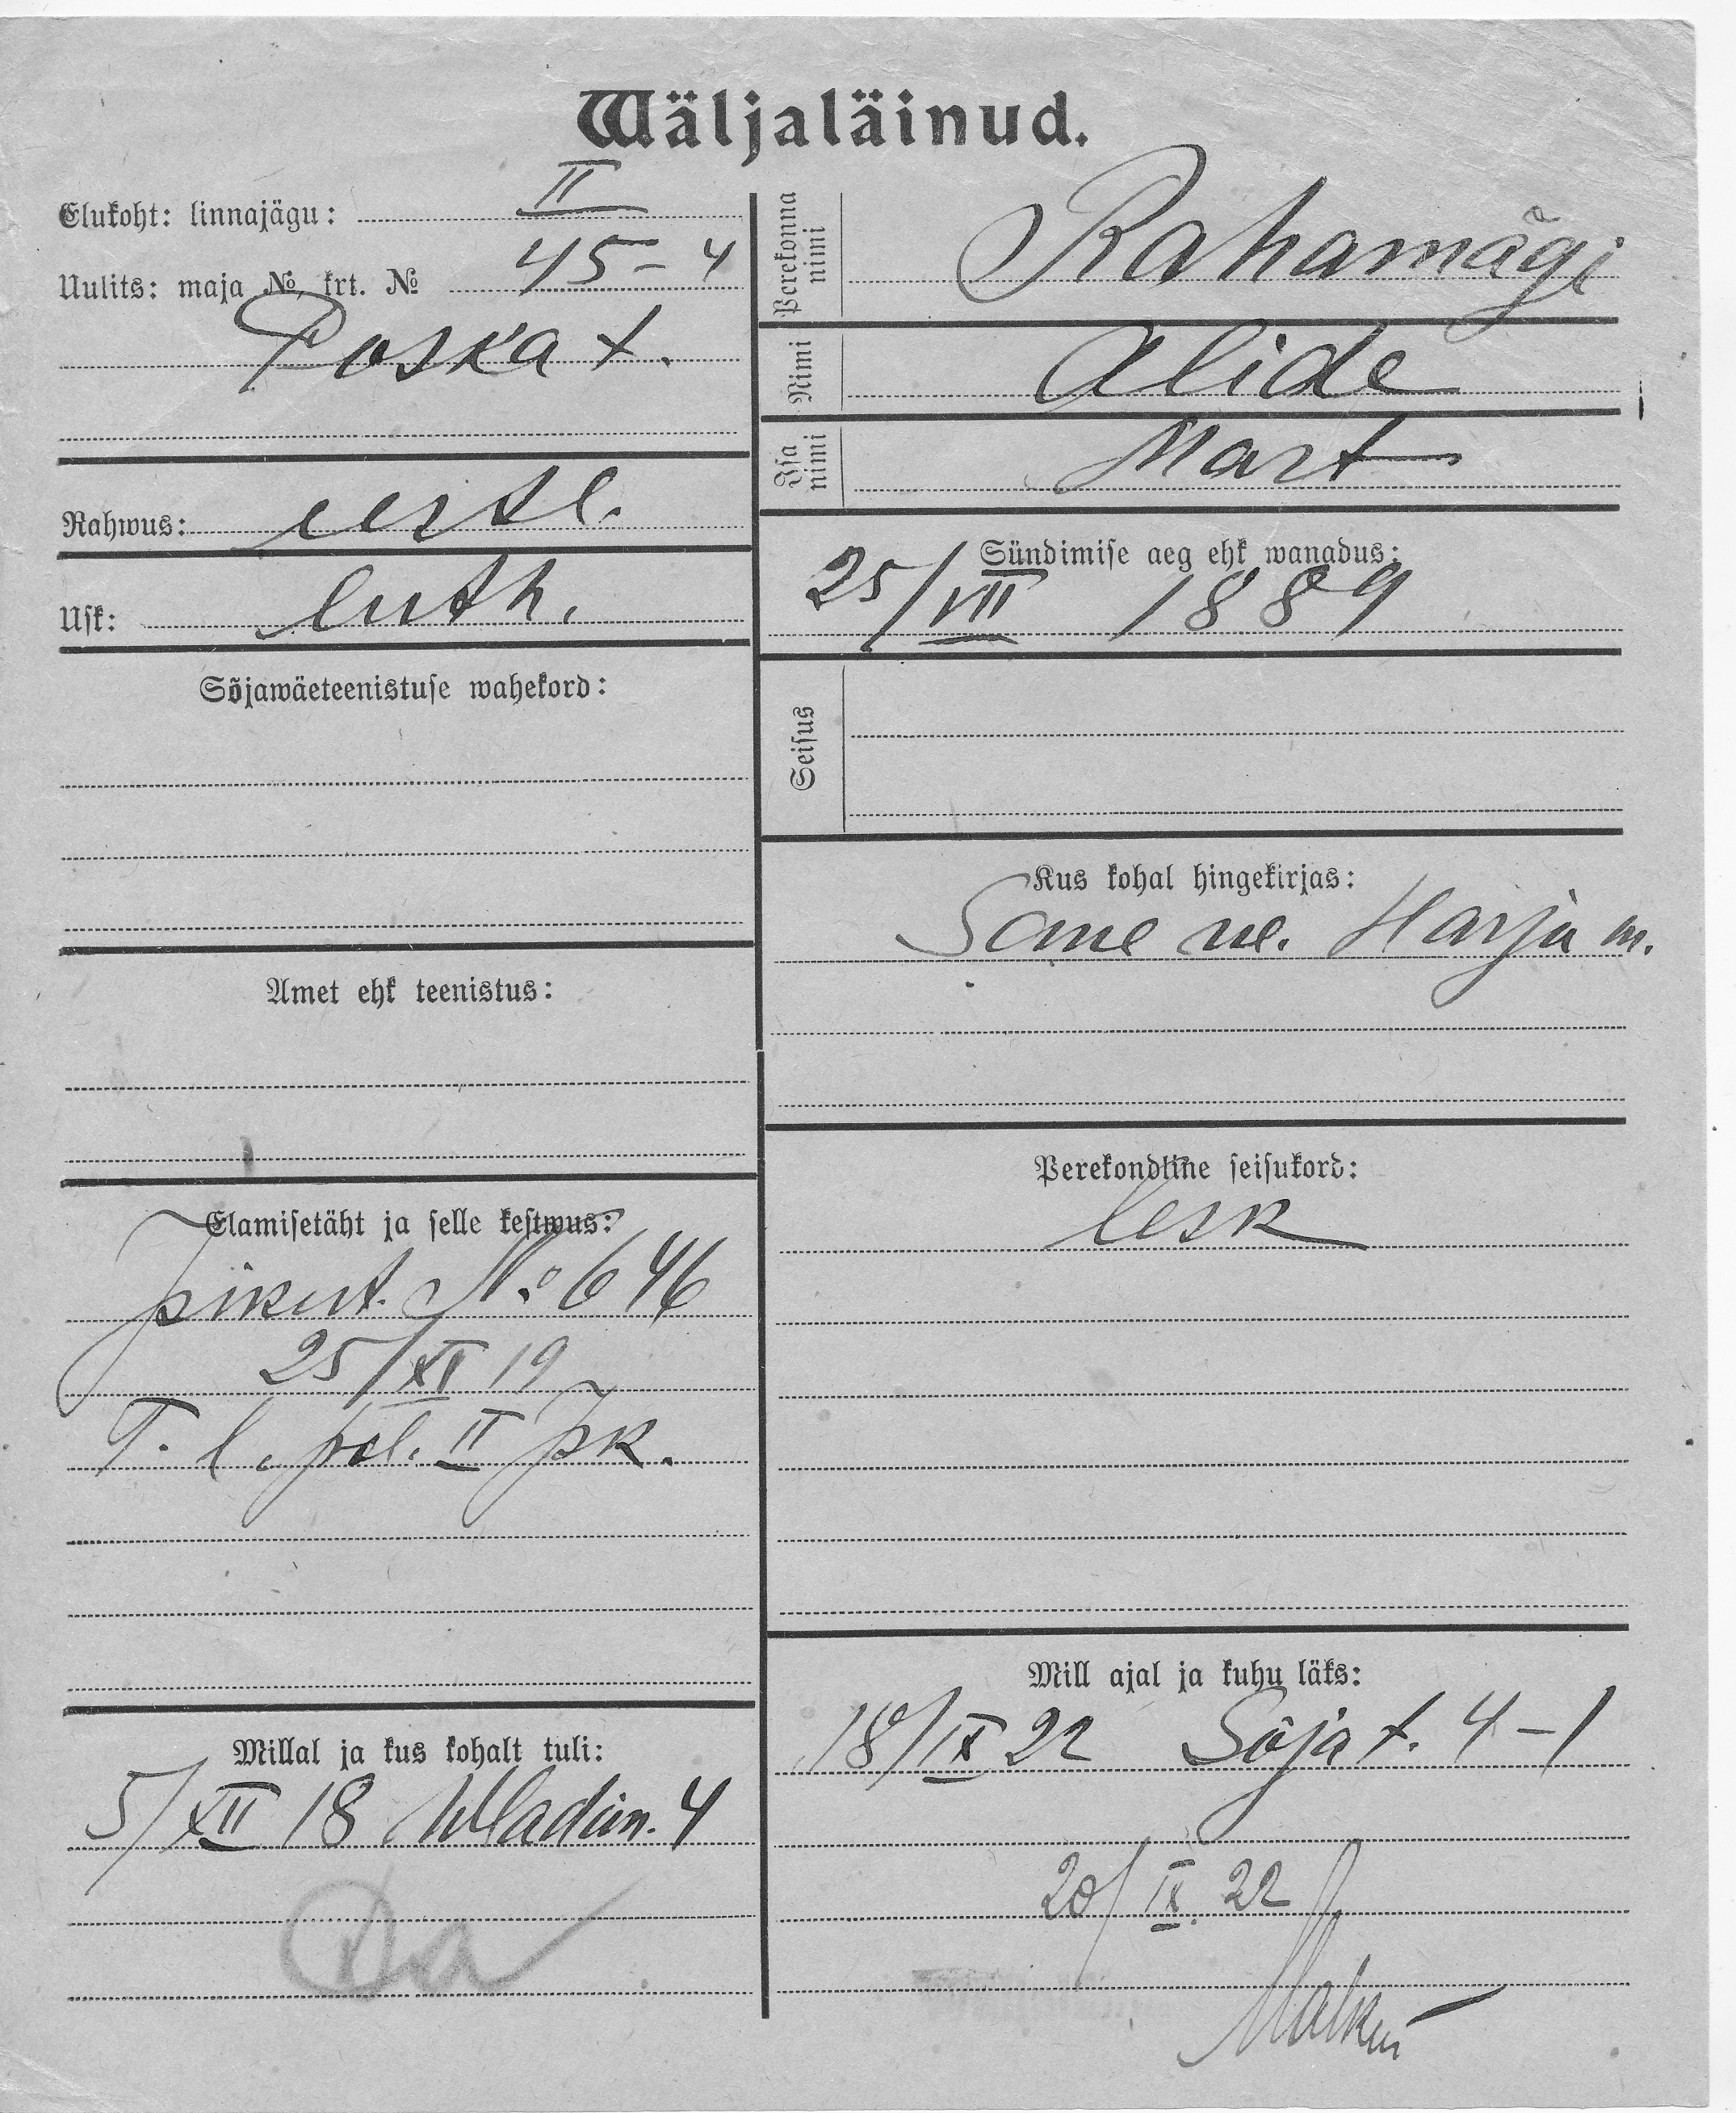 Wäljaläinud.
Elukoht: linnajägu: II
Uulits: maja №, krt. № 45-4
Poska t.
Rahwus: eestl.
Usk: luth.
Sõjawäeteenistuse wahekord:
Amet ehk teenistus:
Elamisetäht ja selle kestwus:
№ 646
25/XI 19
T. l. pol. II jsk.
Millal ja kus kohalt tuli:
5/XII 18 Wladim. 4
Perekonna nimi Rahamägi
Nimi Alide
Isa nimi Mart
Sündimise aeg ehk wanadus:
25/VII 1889
Seisus
Kus kohal hingekirjas:
Harju m.
Perekondline seisukord:
lesk
Mill ajal ja kuhu läks:
18/IX 22 Sõja t. 4-1
20/IX. 22